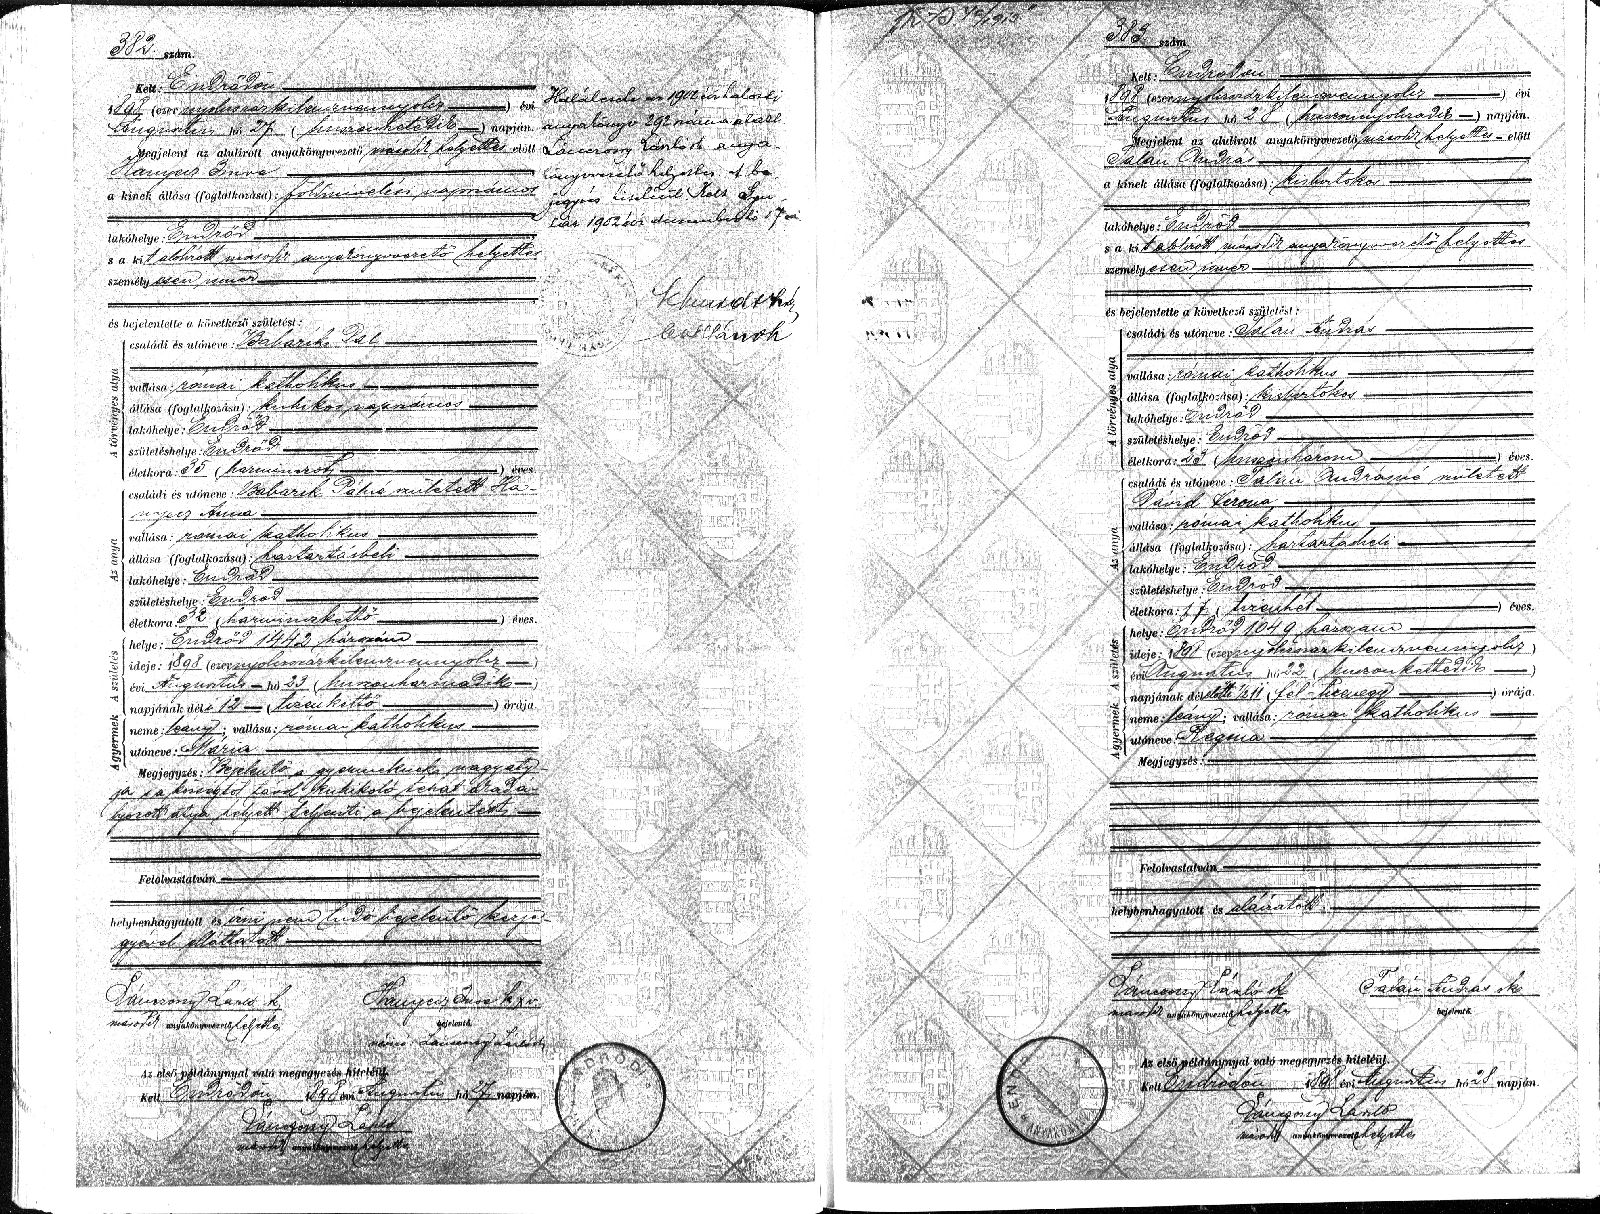 382 szám.
Kelt: Endrődön
1898 (ezer nyolcszázkilencvennyolcz) évi
Augusztus hó 27. (huszonhetedik) napján.
Megjelent az alulirott anyakönyvezető második helyettes előtt
Hanyecz Imre
a kinek állása (foglalkozása): földmivelési napszámos
lakóhelye: Endrőd
s a kit alulirott második anyakönyvvezető helyettes
személyesen ismer
és bejelentette a következő születést:
A törvényes atya
családi és utóneve: Babarik Pál
vallása: római katholikus
állása (foglalkozása): kubikos napszámos
lakóhelye: Endrőd
születéshelye: Endrőd
életkora: 35 (harminczöt) éves.
Az anya
családi és utóneve: Babarik Pálné született Ha-
nyecz Anna
vallása: római katholikus
állása (foglalkozása): háztartásbeli
lakóhelye: Endrőd
születéshelye: Endrőd
életkora: 32 (harminczkettő) éves.
A gyermek A születés
helye: Endrőd 1442 házszám
ideje: 1898 (ezer nyolcszázkilencvennyolcz)
évi Augusztus hó 23 (huszonharmadik)
napjának dél 12 (tizenkettő) órája.
neme: leány; vallása: római katholikus
utóneve: Mária
Megjegyzés: Bejelentő a gyermeknek nagyaty-
ja s a községtől távol kubikoló tehát akadá-
lyozott atya helyett teljesiti a bejelentést.
Felolvastatván
helybenhagyatott és irni nem tudó bejelentő kézje-
gyével elláttatott
Lánczony László
második anyakönyvvezető helyettes
Hanyecz Imre
bejelentő.
Az első példánynyal való megegyezés hiteléül.
Kelt Endrődön 1898 évi Augusztus hó 27 napján.
Lánczony László
második anyakönyvvezető helyettes
Halálesete az 1902 évi halotti
anyakönyv 292 száma alatt
1902 évi december hó 17 én
383 szám
Kelt: Endrődön
1898 (ezer nyolcszázkilencvennyolcz) évi
Augusztus hó 28 (huszonnyolcadik) napján.
Megjelent az alulirott anyakönyvvezető második helyettes előtt
Talán András
a kinek állása (foglalkozása): kisbirtokos
lakóhelye: Endrőd
s a kit alulirott második anyakönyvvezető helyettes
személyesen ismer
és bejelentette a következő születést:
A törvényes atya
családi és utóneve: Talán András
vallása: római katholikus
állása (foglalkozása): kisbirtokos
lakóhelye: Endrőd
születéshelye: Endrőd
életkora: 23 (huszonhárom) éves.
Az anya
családi és utóneve: Talán Andrásné született
Dávid Terona
vallása: római katholikus
állása (foglalkozása): háztartásbeli
lakóhelye: Endrőd
születéshelye: Endrőd
életkora: 17 (tizenhét) éves.
A gyermek A születés
helye: Endrőd 1049 házszám
ideje: 1898 (ezer nyolcszázkilencvennyolcz)
évi Augusztus hó 22 (huszonkettedik)
napjának délelőtti ½11 (fél-tizenegy) órája.
neme: leány; vallása: római katholikus
utóneve: Regina
Megjegyzés:
Felolvastatván
helybenhagyatott és aláiratott.
Lánczony László
második anyakönyvvezető helyettes
Talán András sk
bejelentő.
Az első példánynyal való megegyezés hiteléül.
Kelt Endrődön 1898 évi Augusztus hó 28 napján.
Lánczony László
második anyakönyvvezető helyettes